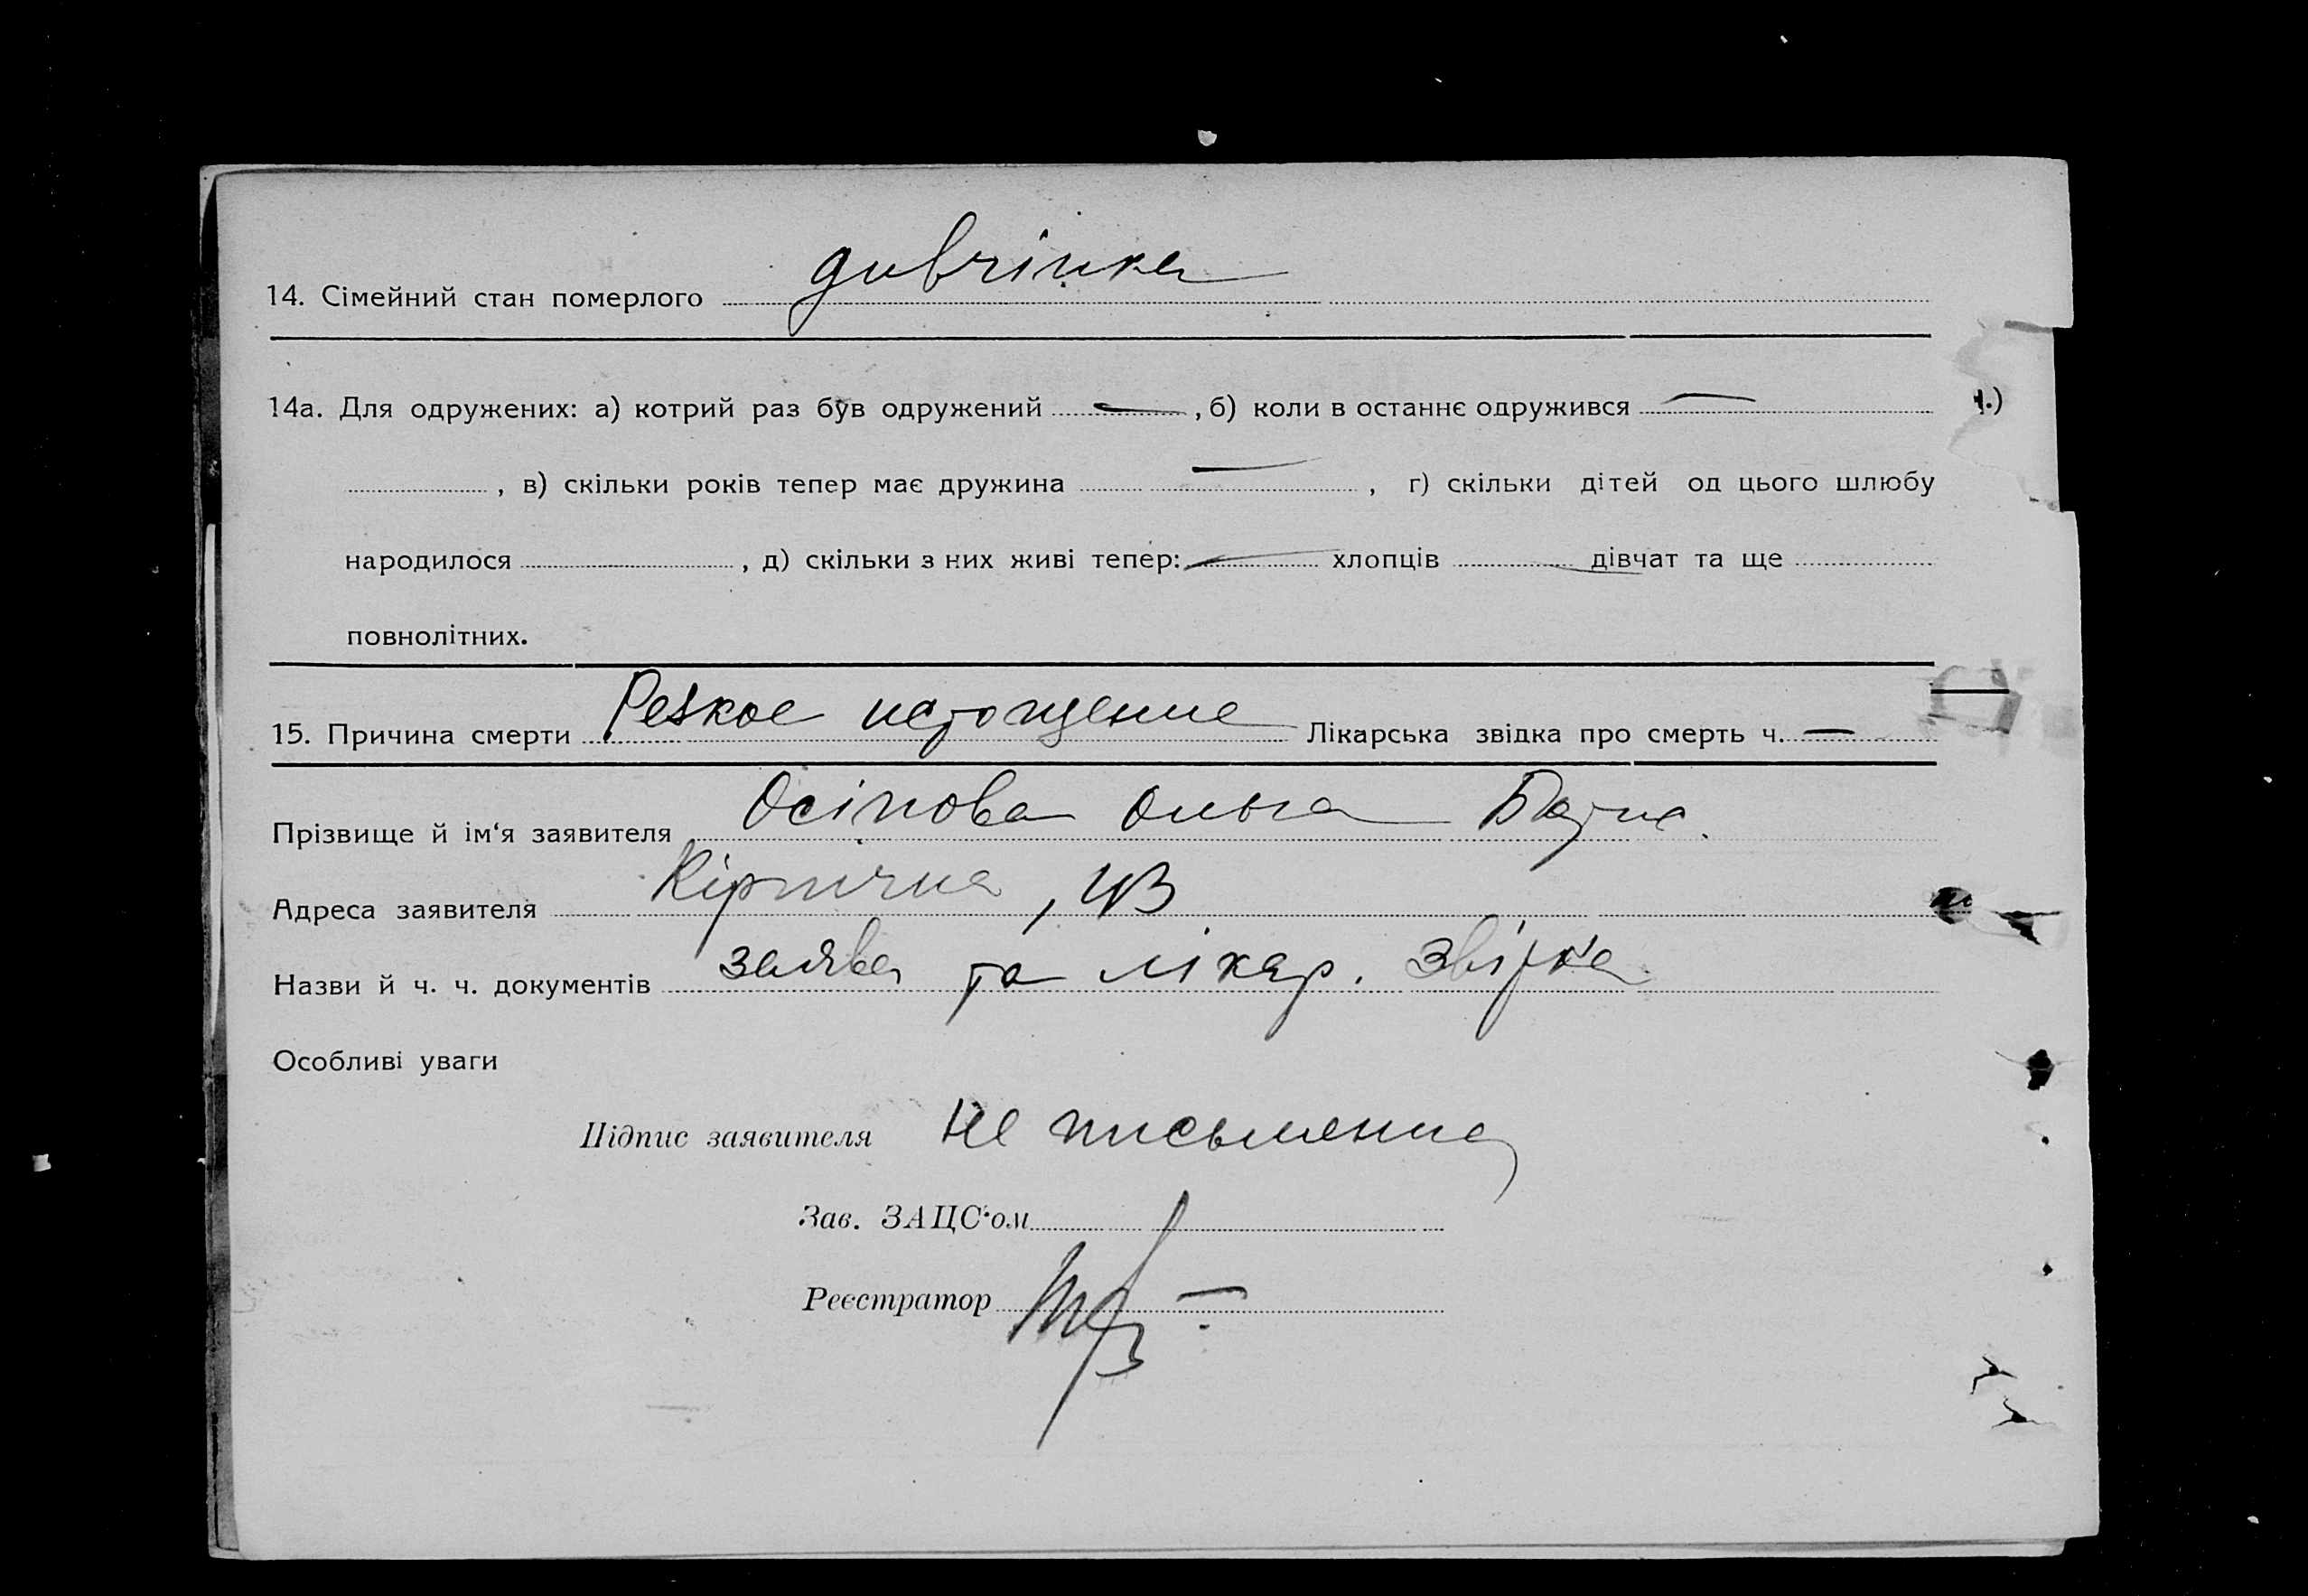 14. Сімейний стан померлого дивчінка
14а. Для одружених: а) котрий раз був одружений —, б) коли в останнє одружився —
, в) скільки років тепер має дружина —, г) скільки дітей од цього шлюбу
народилося , д) скільки з них живі тепер: — хлопців дівчат та ще
повнолітних.
15. Причина смерти Резкое истощение Лікарська звідка про смерть ч. —
Прізвище й ім‘я заявителя Осіпова Ольга
Адреса заявителя Кірпична,
Назви й ч. ч. документів заява та лікар. звідка
Особливі уваги
Підпис заявителя не письменна
Зав. ЗАЦС‘ом
Реєстратор